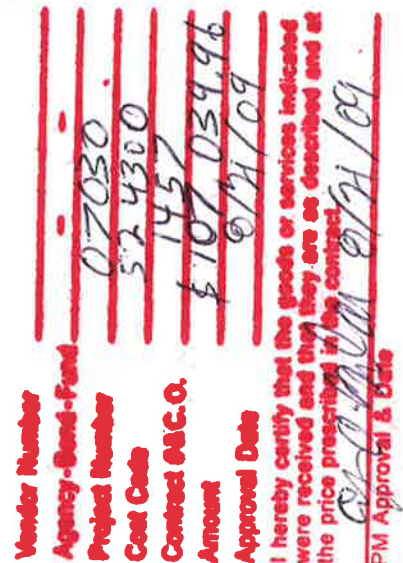 Vendor Number
Agency-Bond-Fund - -
Project Number 07030
Cost Code 524300
Contract #&C.O. 1457
Amount $107 039.96
Approval Date 8/21/09
I hereby certify that the goods or services indicated
were received and that they are as described and at
the price prescribed in the contract.
8/21/09
PM Approval & Date